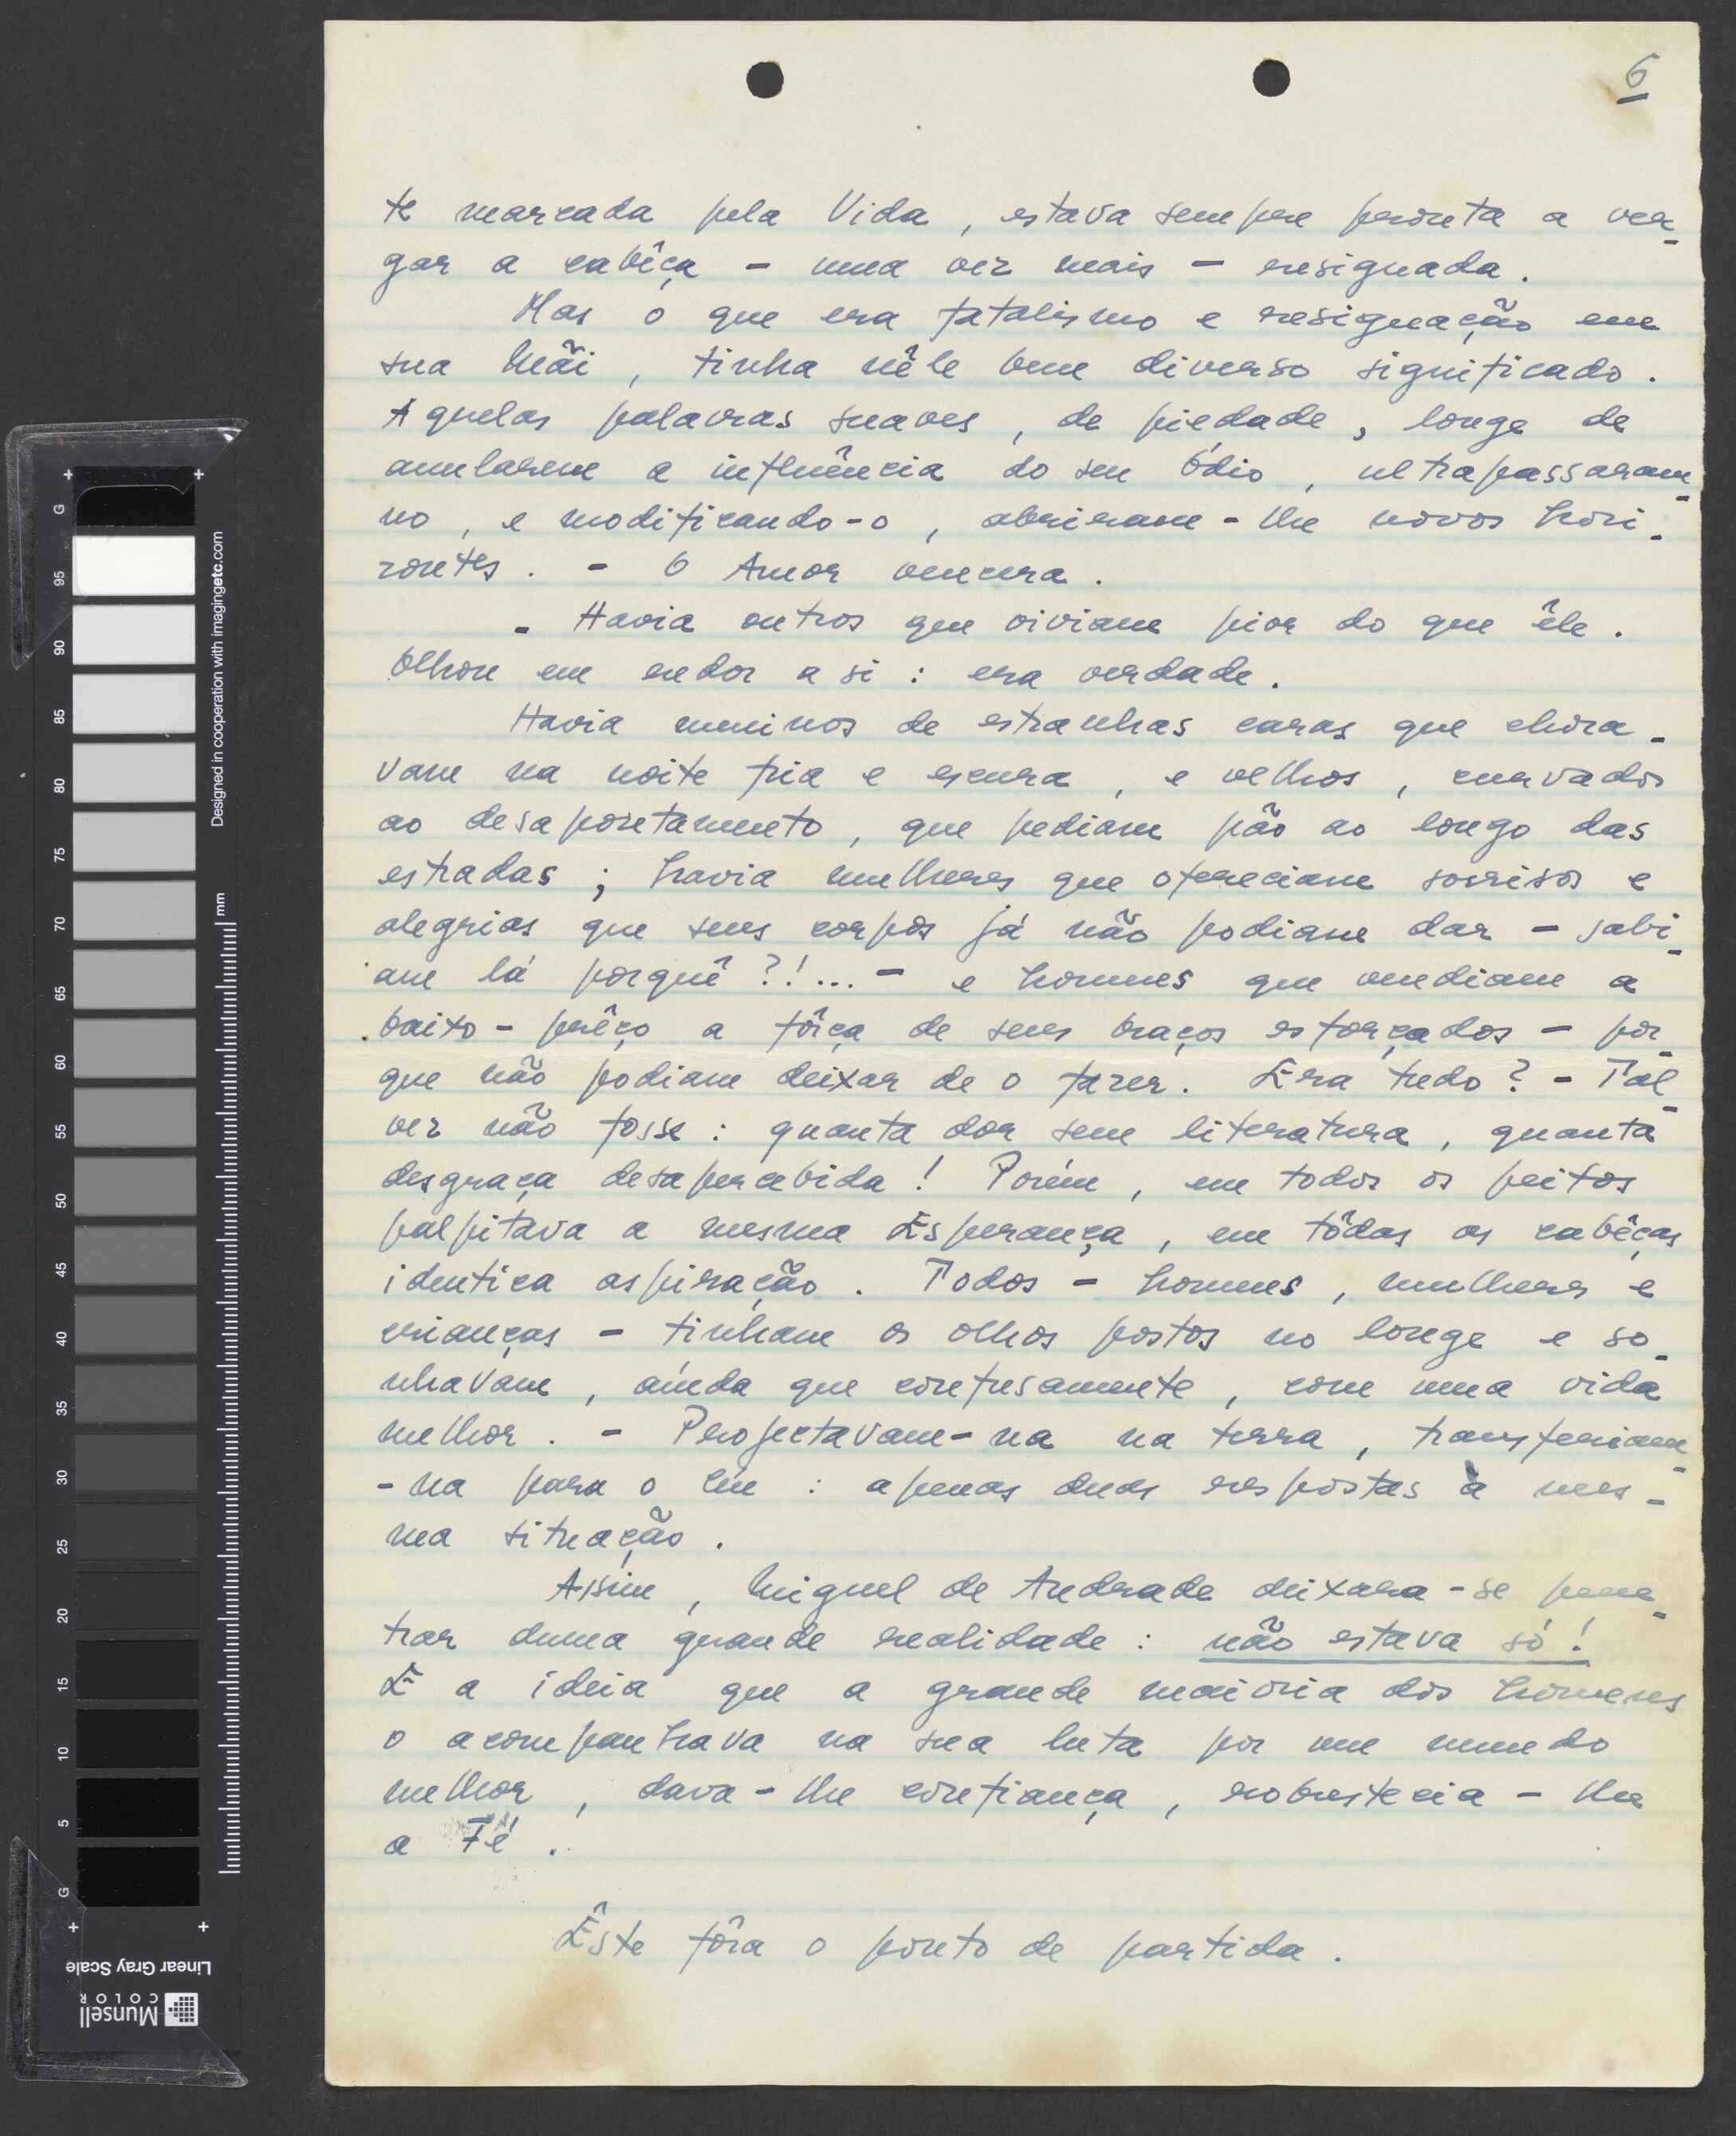 6
te marcada pela Vida, estava sempre pronta a ver-
gar a cabêça - uma vez mais - resignada.
Mas o que era fatalismo e resignação em
sua Mãi, tinha nêle bem diverso significado.
Aquelas palavras suaves, de piedade, longe de
anularem a influência do seu ódio, ultrapassaram-
no, e modificando-o, abriram-lhe novos hori-
zontes. - O Amor vencera.
- Havia outros que viviam pior do que êle.
Olhou em redor a si: era verdade.
Havia meninos de estranhas caras que chora-
vam na noite fria e escura, e velhos, curvados
ao desapontamento, que pediam pão ao longo das
estradas; havia mulheres que ofereciam sorrisos e
alegrias que seus corpos já não podiam dar - sabi-
am lá porquê?!... - e homens que vendiam a
baixo-prêço a fôrça de seus braços esforçados - por-
que não podiam deixar de o fazer. Era tudo? - Tal-
vez não fosse: quanta dor sem literatura, quanta
desgraça desapercebida! Porém, em todos os peitos
palpitava a mesma Esperança, em tôdas as cabêças
identica aspiração. Todos - homens, mulheres e
crianças - tinham os olhos postos no longe e so-
nhavam, aínda que confusamente, com uma vida
melhor. - Projectavam-na na terra, transferiam-
-na para o céu: apenas duas respostas à mes-
ma situação.
Assim, Miguel de Andrade deixara-se pene-
trar duma grande realidade: não estava só!
E a ideia que a grande maioria dos homens
o acompanhava na sua luta por um mundo
melhor, dava-lhe confiança, robustecia-lhe
a Fé.
Êste fôra o ponto de partida.
Designed in cooperation with imagingetc.com
mm
G
95
90
85
80
75
70
65
60
55
50
45
40
35
30
25
20
15
10
5
G
Linear Gray Scale
Munsell
COLOR